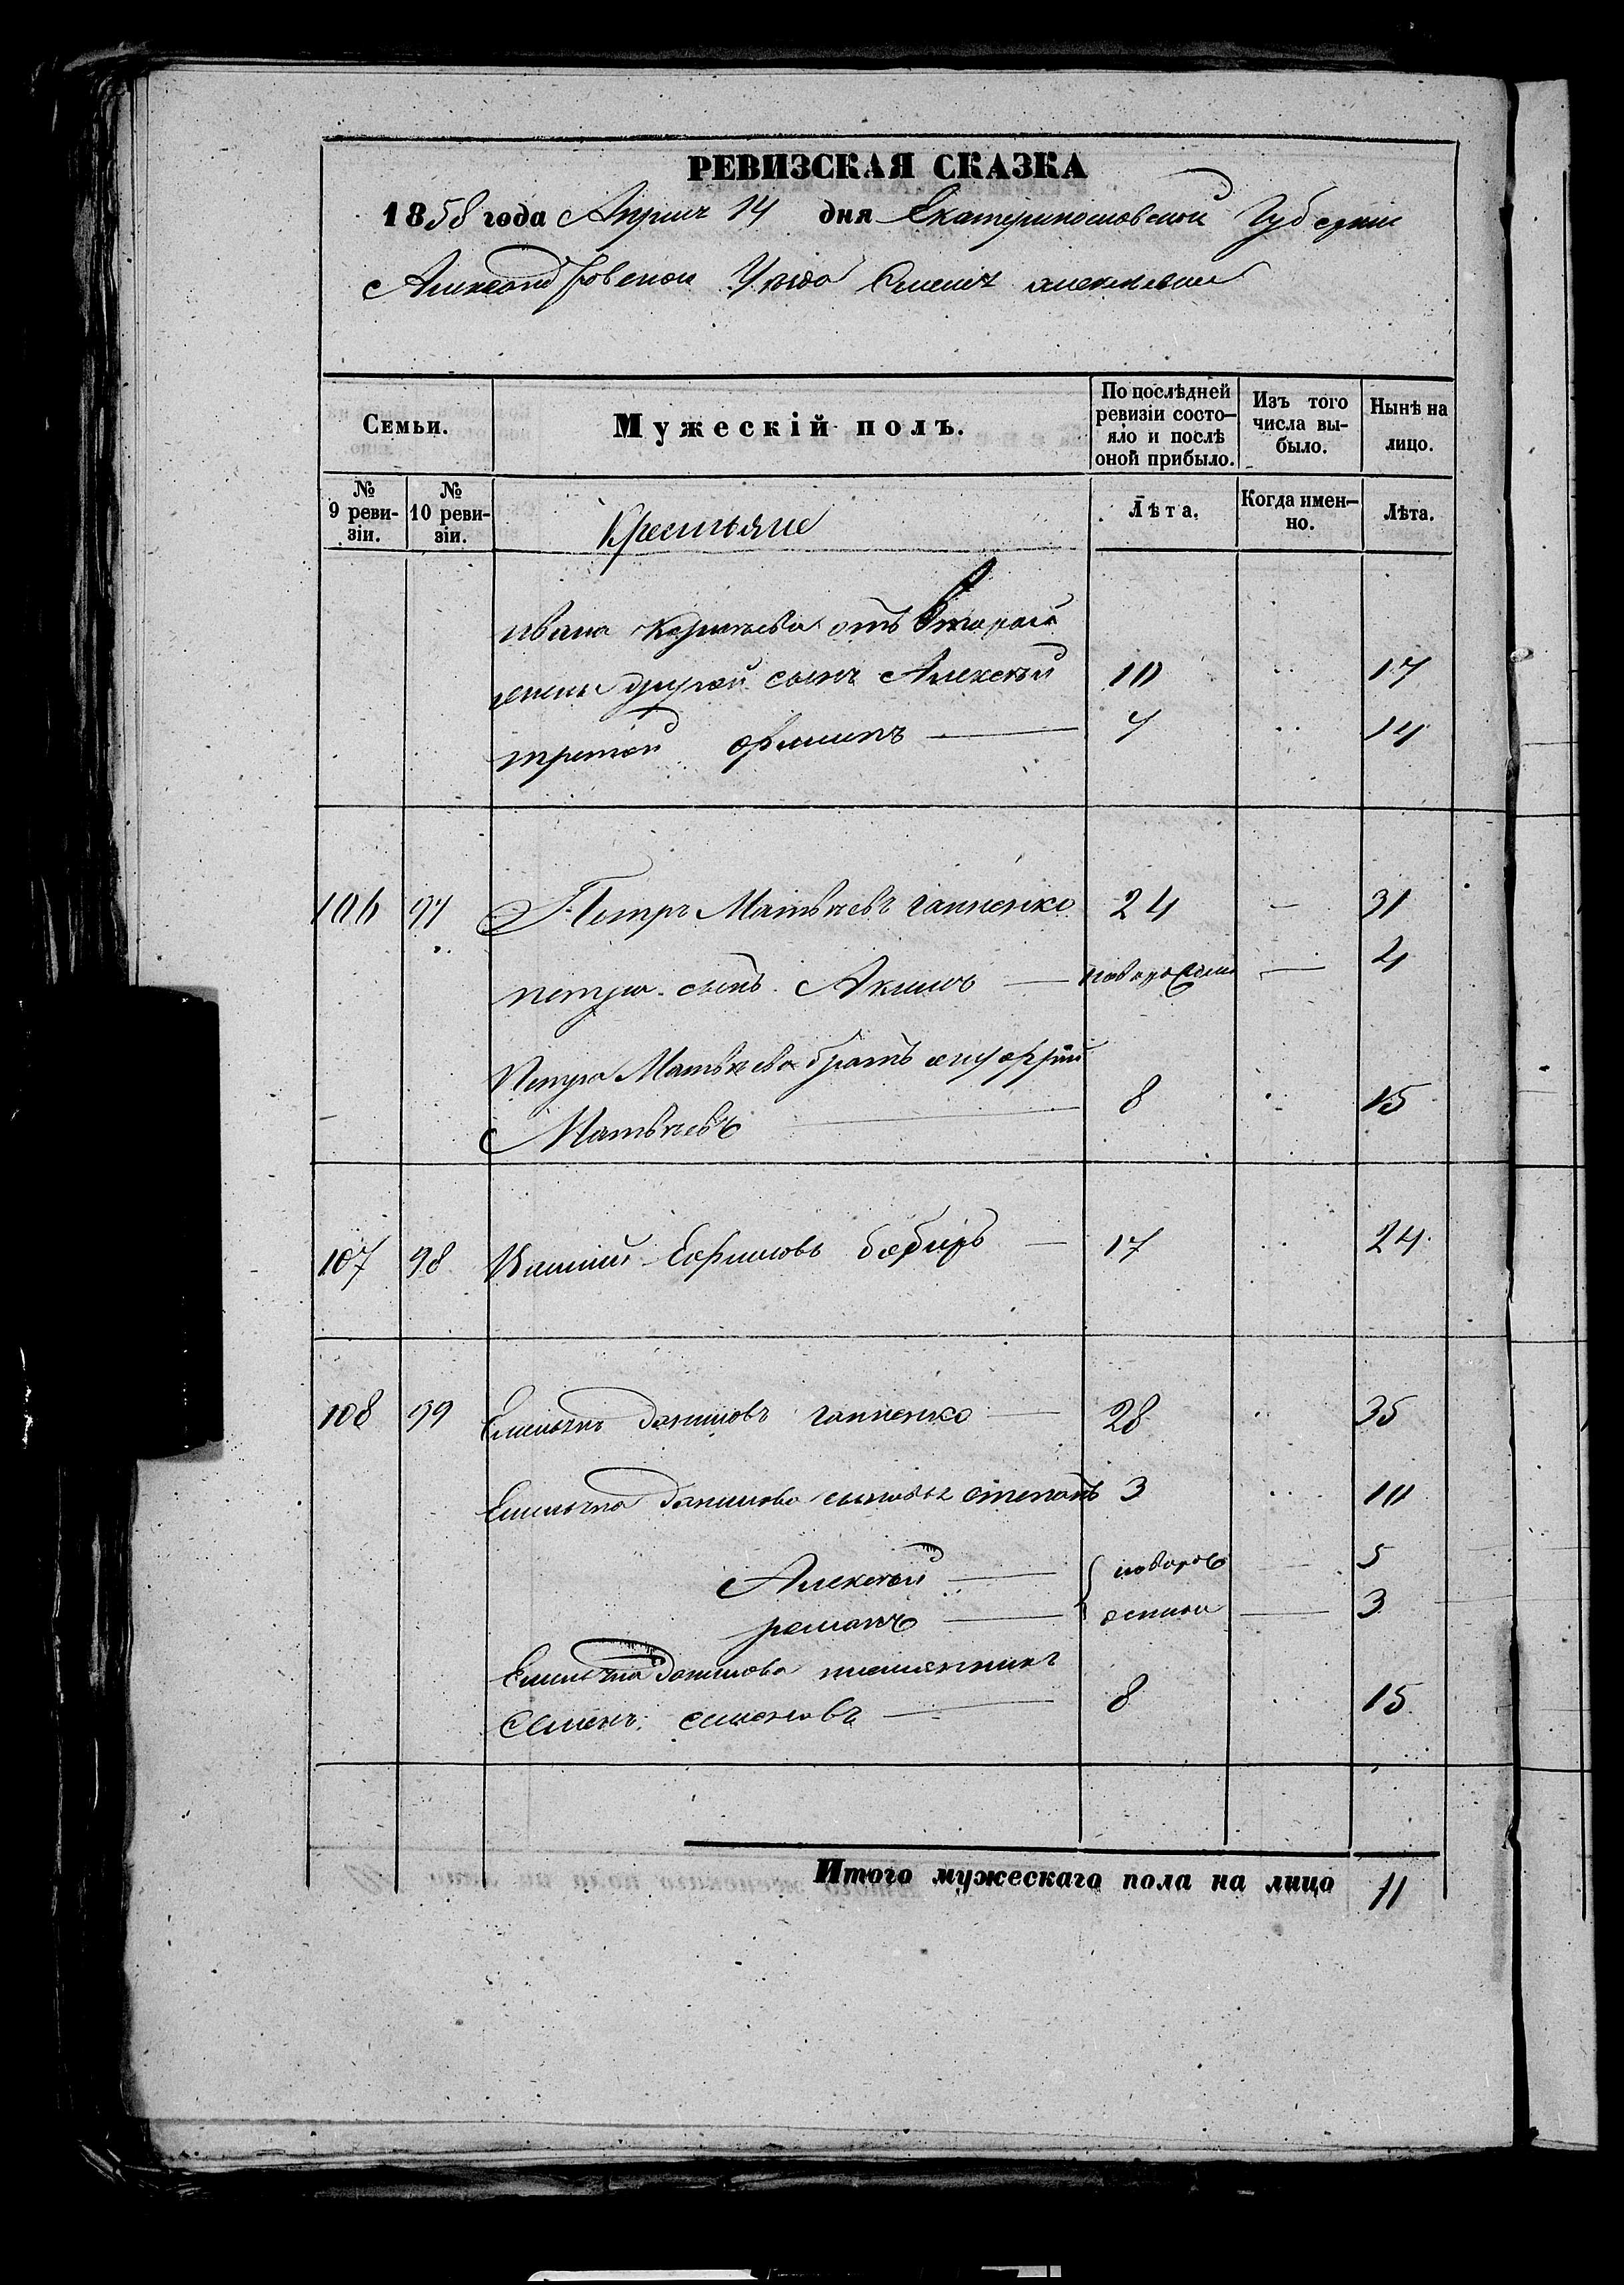 РЕВИЗСКАЯ СКАЗКА
1858 года Апрѣля 14 дня Екатеринославской Губерніи
Александровского Уѣзда
Семьи.
Мужескій полъ.
По послѣдней ревизіи состо-яло и послѣ оной прибыло.
Изъ того числа вы-было.
Нынѣ на лицо.
№ 9 реви-зіи.
№ 10 реви-зіи.
Крестьяне
Лѣта.
Когда имен-но.
Лѣта.
Ивана Корнѣева отъ второй
жены другой сынъ Алексѣй 10 17
третій Филипъ 7 14
106 97 Петръ Матвѣевъ Гапненко 24 — 31
Петра сынъ Акимъ — новорожден — 4
Петра Матвѣева братъ
Матвѣевъ 8 15
107 98 Ефимовъ — 17 24
108 99 Емельянъ Даниловъ Гапненко — 28 35
Емельяна Данилова сыновья Степанъ 3 10
Алексѣй — новоро 5
романъ — — 3
Емельяна Данилова племянникъ
Семенъ Семеновъ — 8 15
Итого мужескаго пола на лицо 11